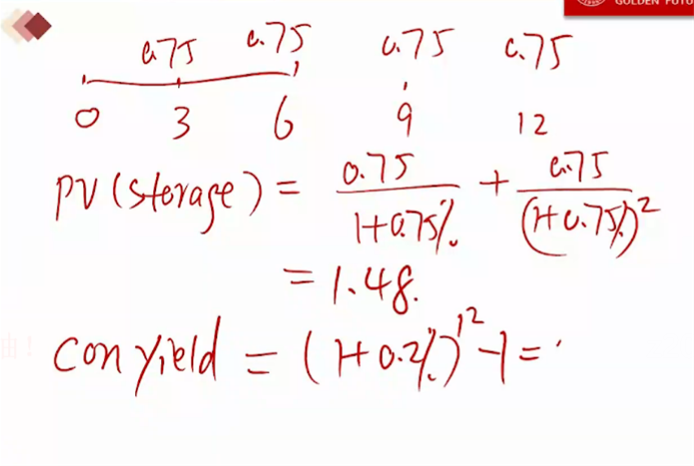 GOLDEN FUTU
0.75 0.75 0.75 0.75
0 3 6 9 12
PV (storage) = 0.75/(1+0.75%) + 0.75/(1+0.75%)²
= 1.48.
Con yield = (1+0.2%)¹² -1 =